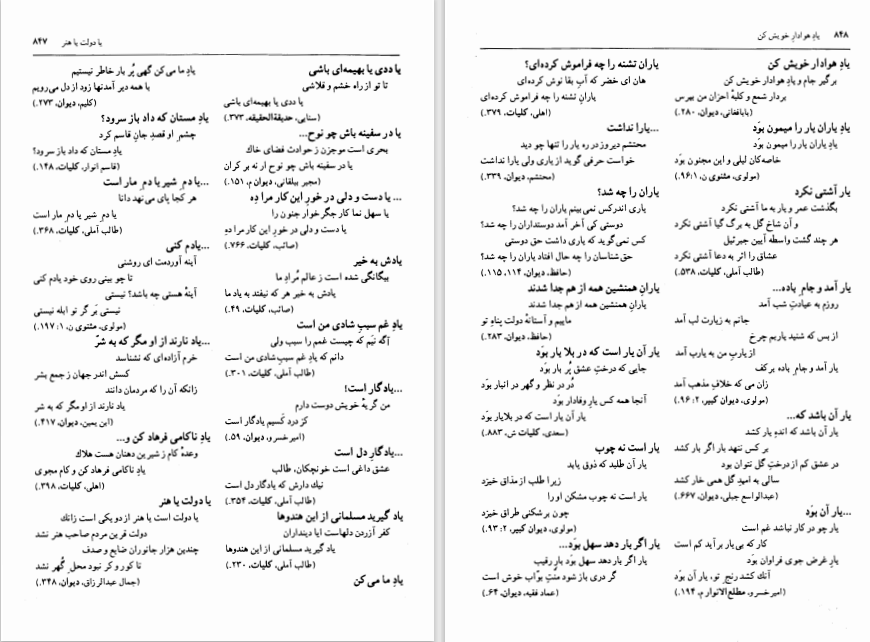 ۸۴۸
یادِ هوادارِ خویش کن
یادِ هوادار خویش کن
برگیر جام و یادِ هوادار خویش کن
بردار شمع و کلبهٔ احزان من بپرس
(بابافغانی، دیوان، ۲۸۰.)
یادِ یاران یار را میمون بوَد
یادِ یاران یار را میمون بوَد
خاصه‌کان لیلی و این مجنون بوَد
(مولوی، مثنوی ن، ۱:۹۶.)
یار آشتی نکرد
بگذشت عمر و یار به ما آشتی نکرد
و آن شاخ گل به برگ گیا آشتی نکرد
هر چند گشت واسطه آیین جبرئیل
عشاق را اثر به دعا آشتی نکرد
(طالب آملی، کلیات، ۵۳۸.)
یار آمد و جامِ باده...
روزم به عیادتِ شب آمد
جانم به زیارت لب آمد
از بس که شنید یاربم چرخ
از یاربِ من به یارب آمد
یار آمد و جام باده برکف
زان می که خلافِ مذهب آمد
(مولوی، دیوان کبیر، ۲: ۹۶.)
یار آن باشد که...
یار آن باشد که اندهِ یار کشد
بر کس ننهد بار اگر بار کشد
در عشق کم از درختِ گل نتوان بود
سالی به امیدِ گل همی خار کشد
(عبدالواسع جبلی، دیوان، ۶۶۷.)
...یار آن بوَد
یار چو در کار نباشد غم است
کار که بی‌یار برآید کم است
یارِ غرض جوی فراوان بوَد
آنک کشد رنجِ تو، یار آن بوَد
(امیرخسرو، مطلع‌الانوار م، ۱۹۴.)
یاران تشنه را چه فراموش کرده‌ای؟
هان ای خضر که آبِ بقا نوش کرده‌ای
یارانِ تشنه را چه فراموش کرده‌ای
(اهلی، کلیات، ۳۷۹.)
...یارا نداشت
محتشم دیروز در ره یار را تنها چو دید
خواست حرفی گوید از یاری ولی یارا نداشت
(محتشم، دیوان، ۳۳۹.)
یاران را چه شد؟
یاری اندرکس نمی‌بینم یاران را چه شد؟
دوستی کی آخر آمد دوستداران را چه شد؟
کس نمی‌گوید که یاری داشت حق دوستی
حق‌شناسان را چه حال افتاد یاران را چه شد؟
(حافظ، دیوان، ۱۱۴، ۱۱۵.)
یارانِ همنشین همه از هم جدا شدند
یارانِ همنشین همه از هم جدا شدند
ماییم و آستانهٔ دولت پناهِ تو
(حافظ، دیوان، ۲۸۳.)
یار آن یار است که در بلا یار بوَد
جایی که درختِ عشق پُر بار بوَد
دُر در نظر و گهر در انبار بوَد
آنجا همه کس یارِ وفادار بوَد
یار آن یار است که در بلا یار بوَد
(سعدی، کلیات ش، ۸۸۳.)
یار است نه چوب
یار آن طلبد که ذوق یابد
زیرا طلب از مذاق خیزد
یار است نه چوب مشکن او را
چون برشکنی طراق خیزد
(مولوی، دیوان کبیر، ۲: ۹۳.)
یار اگر بار دهد سهل بوَد...
یار اگر بار دهد سهل بوَد بارِ رقیب
گر دری باز شود منتِ بوّاب خوش است
(عماد فقیه، دیوان، ۶۴.)
یا دولت یا هنر
۸۴۷
یا ددی یا بهیمه‌ای باشی
تا تو از راه خشم و قلاشی
یا ددی یا بهیمه‌ای باشی
(سنایی، حدیقةالحقیقه، ۳۷۳.)
یا در سفینه باش چو نوح...
بحری است موجزن ز حوادث فضای خاک
یا در سفینه باش چو نوح ار نه بر کران
(مجیر بیلقانی، دیوان م، ۱۵۱.)
... یا دست و دلی در خورِ این کار مرا دِه
یا سهل نما کار جگرخوار جنون را
یا دست و دلی در خورِ این کار مرا دِه
(صائب، کلیات، ۷۶۶.)
یادش به خیر
بیگانگی شده است ز عالم مُرادِ ما
یادش به خیر هر که نیفتد به یاد ما
(صائب، کلیات، ۴۹.)
یادِ غم سببِ شادی من است
آگه نیَم که چیست غمم را سبب ولی
دانم که یادِ غم سببِ شادی من است
(طالب آملی، کلیات، ۳۰۱.)
...یادگار است!
من گریهٔ خویش دوست دارم
کز درد کَسیم یادگار است
(امیرخسرو، دیوان، ۵۹.)
...یادگارِ دل است
عشق داغی است خونچکان، طالب
نیک دارش که یادگارِ دل است
(طالب آملی، کلیات، ۳۵۴.)
یاد گیرید مسلمانی از این هندوها
کفر آزردنِ دلهاست ایا دینداران
یاد گیرید مسلمانی از این هندوها
(طالب آملی، کلیات، ۲۳۰.)
یادِ ما می‌کن
یادِ ما می‌کن گهی پُر بار خاطر نیستیم
با همه دیر آمدنها زود از دل می‌رویم
(کلیم، دیوان، ۲۷۳.)
یادِ مستان که داد باز سرود؟
چشمِ او قصدِ جانِ قاسم کرد
یادِ مستان که داد باز سرود؟
(قاسم انوار، کلیات، ۱۴۸.)
...یا دمِ شیر یا دمِ مار است
هر کجا پای می‌نهد دانا
یا دمِ شیر یا دمِ مار است
(طالب آملی، کلیات، ۳۶۸.)
...یادم کنی
آینه آوردمت ای روشنی
تا چو بینی روی خود یادم کنی
آینهٔ هستی چه باشد؟ نیستی
نیستی بَر گر تو ابله نیستی
(مولوی، مثنوی ن، ۱: ۱۹۷.)
...یاد نارند از او مگر که به شرّ
خرم آزاده‌ای که نشناسد
کسش اندر جهان ز جمعِ بشر
زانکه آن را که مردمان دانند
یاد نارند از او مگر که به شر
(ابن یمین، دیوان، ۴۱۷.)
یادِ ناکامی فرهاد کن و...
وعدهٔ کام ز شیرین دهنان هست هلاک
یادِ ناکامی فرهاد کن و کام مجوی
(اهلی، کلیات، ۳۹۸.)
یا دولت یا هنر
یا دولت است یا هنر از دو یکی است زانك
دولت قرین مردم صاحب هنر نشد
چندین هزار جانوران ضایع و صدف
تا کور و کر نبود محلِ گُهر نشد
(جمال عبدالرزاق، دیوان، ۳۴۸.)